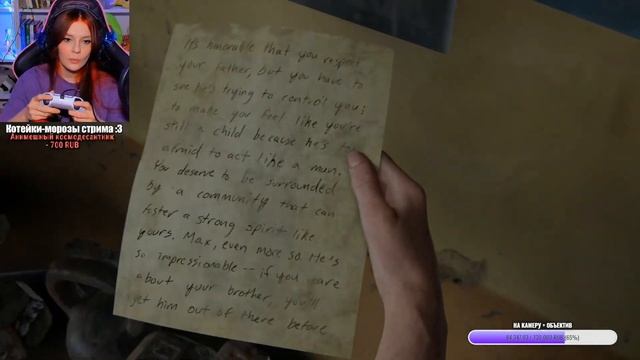 It's honorable that you respect
your father, but you have to
see he's trying to control you;
to make you feel like you're
still a child because he's too
afraid to act like a man.
You deserve to be surrounded
by a community that can
foster a strong spirit like
yours. Max, even more so. He's
so impressionable -- if you care
about your brother, you'll
get him out of there before
Котейки-морозы стрима :3
Анимешный космодесантник
- 700 RUB
НА КАМЕРУ + ОБЪЕКТИВ
RUB (65%)